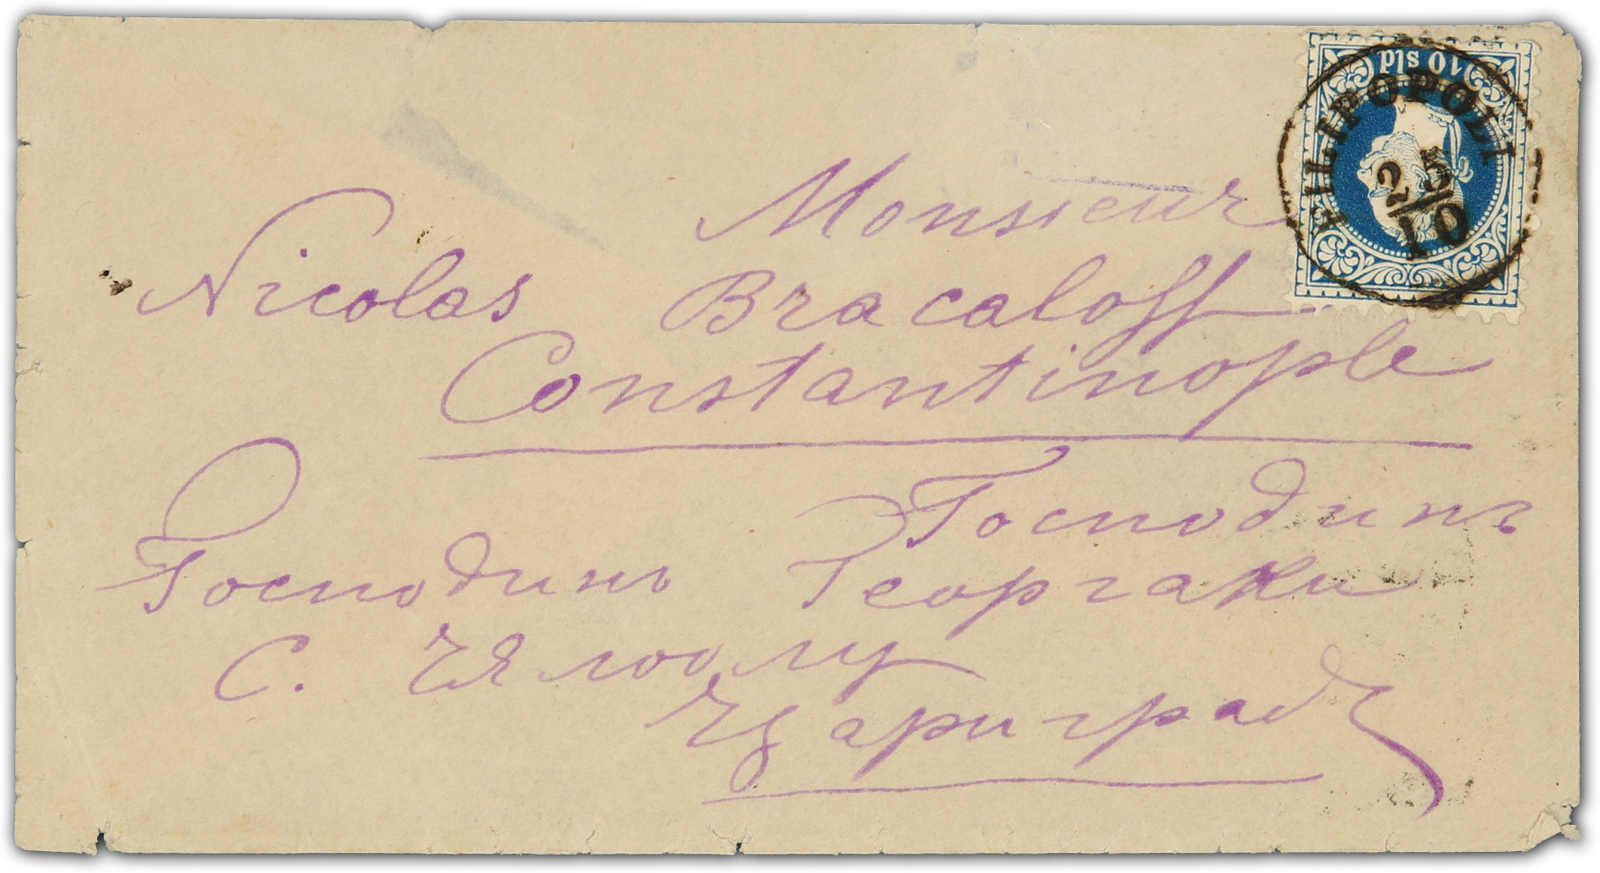 10 sld
FILIPOPOLI
25
10
Monsieur
Nicolas Bracaloff
Constantinople
Господинъ
Господинъ Георгаки
С. Чялоолу
Цариградъ